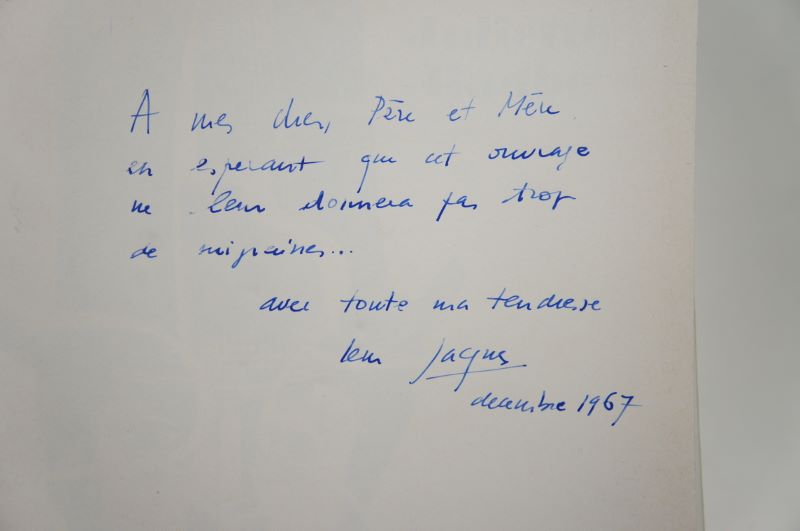 A mes chers Père et Mère
en espérant que cet ouvrage
ne leur donnera pas trop
de migraines...
avec toute ma tendresse
leur Jacques
décembre 1967